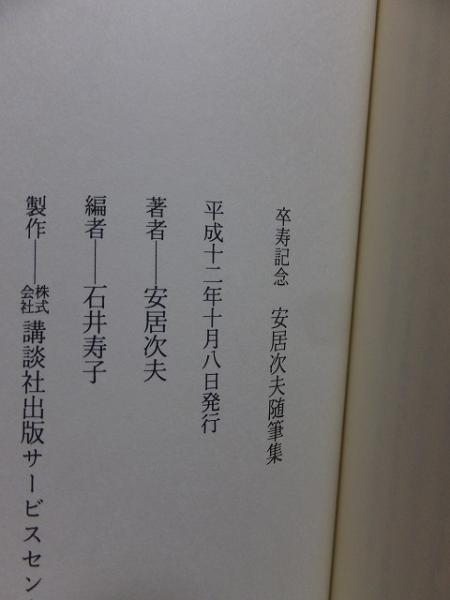 卒寿記念 安居次夫随筆集
平成十二年十月八日発行
著者――安居次夫
編者――石井寿子
製作――株式会社 講談社出版サービスセン